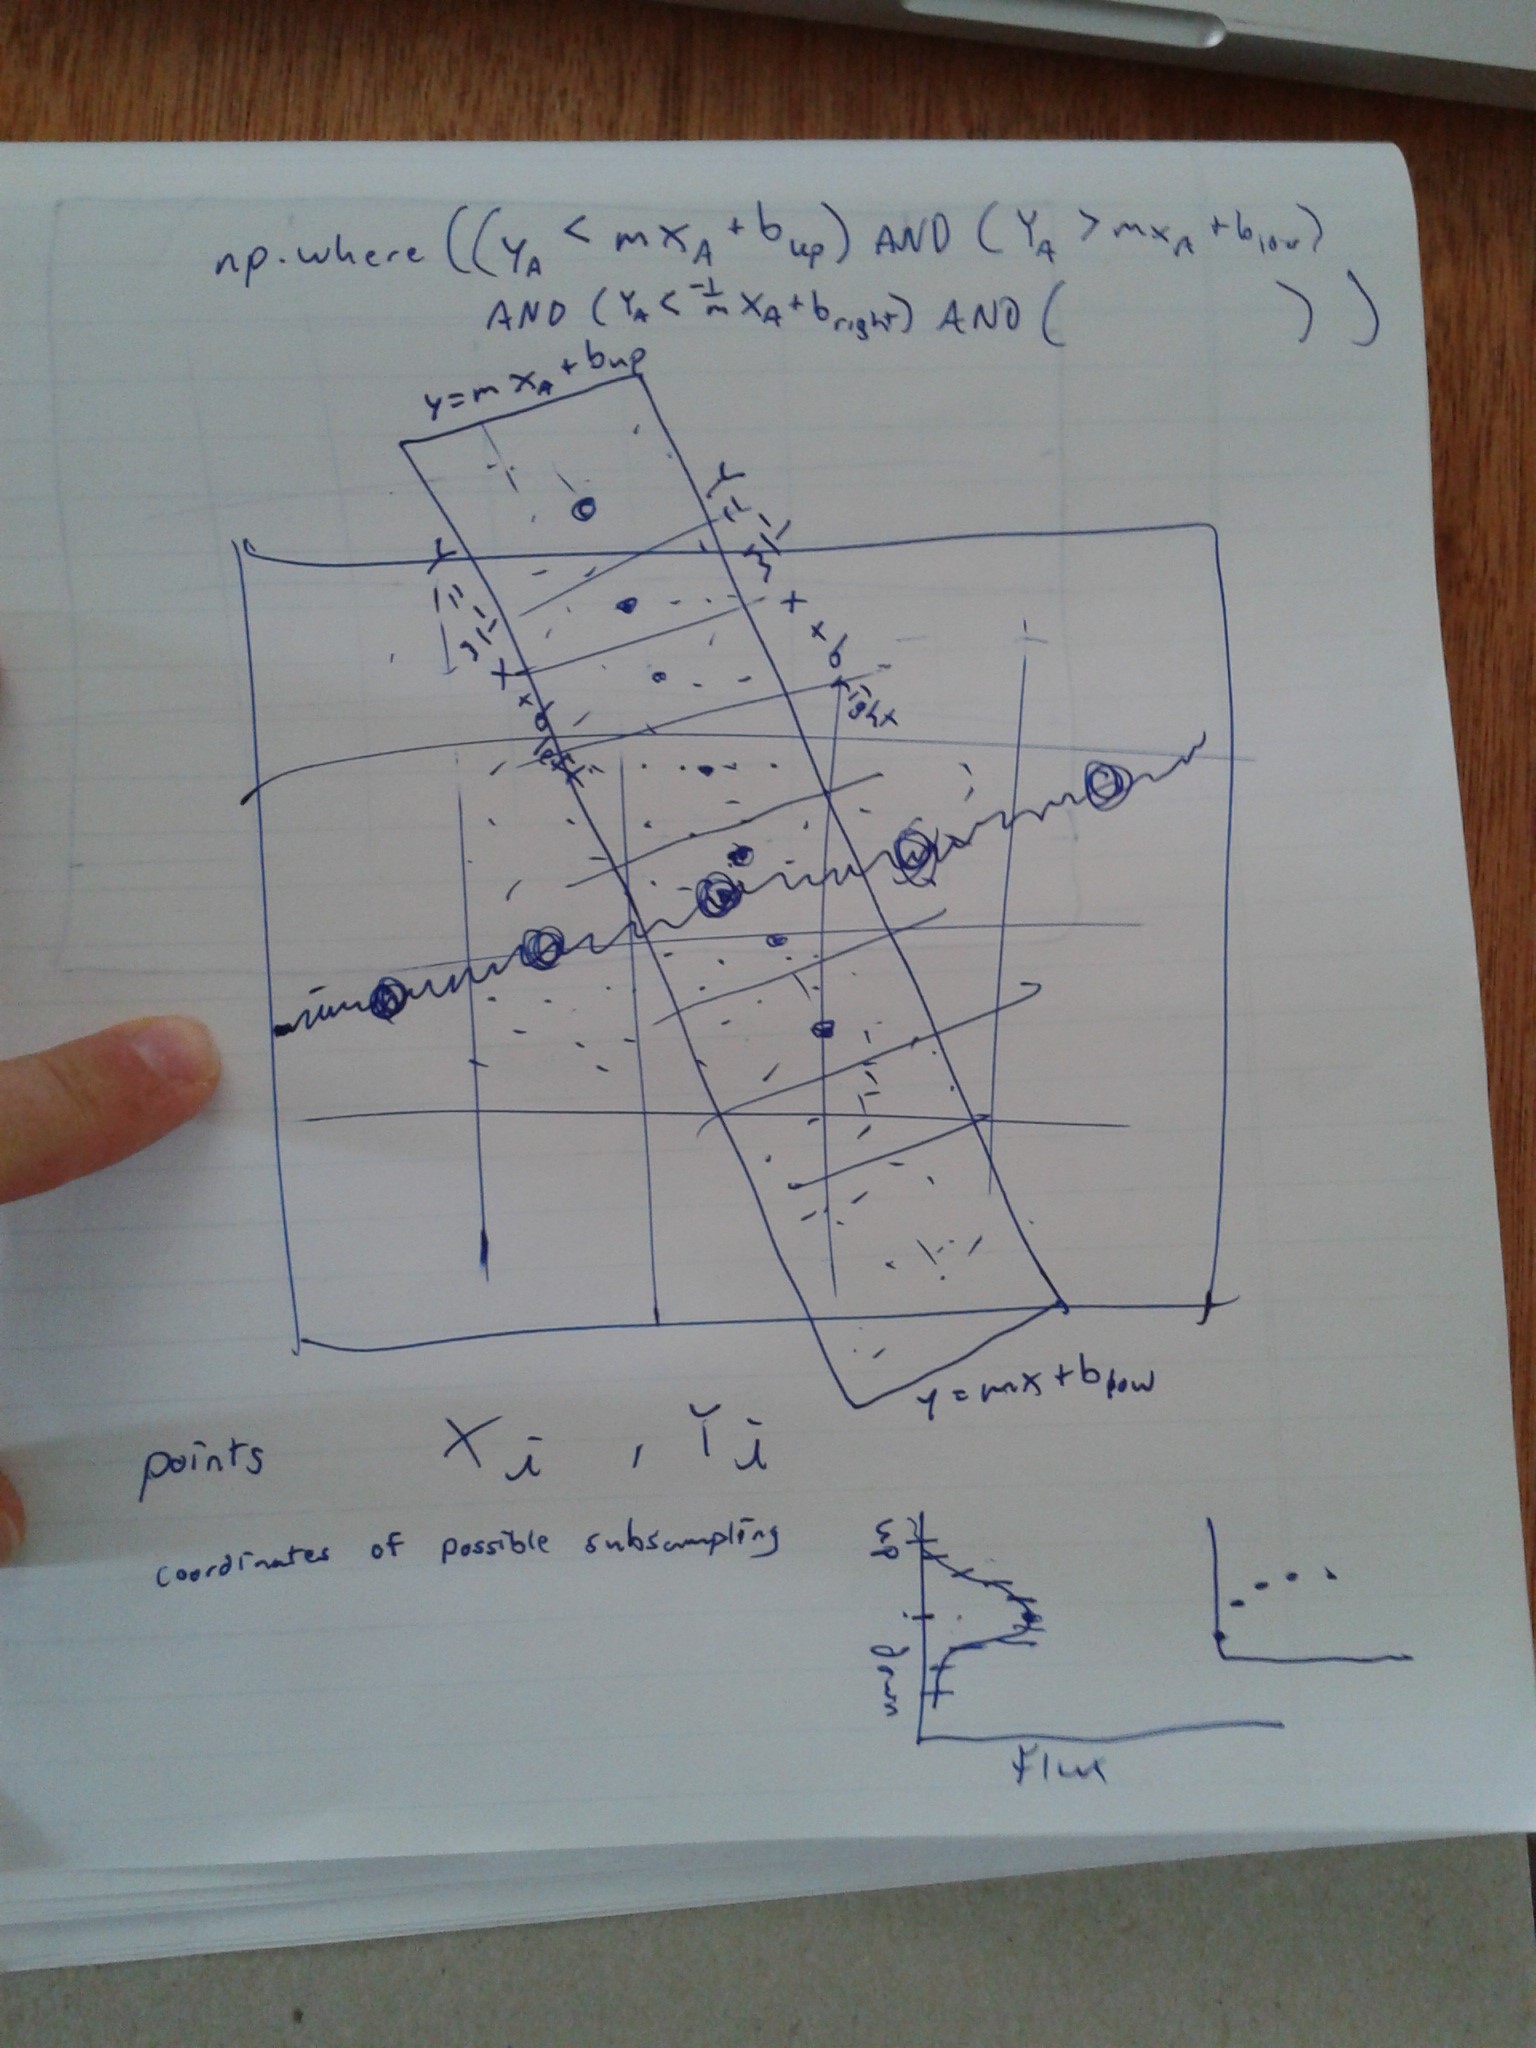 np.where ((Y_A < m X_A + b_up) AND (Y_A > m X_A + b_low)
AND (Y_A < -1/m X_A + b_right) AND (          ) )
y = m X_A + b_up
y = mx + b_low
points X_i , Y_i
coordinates of possible subsampling
Flux